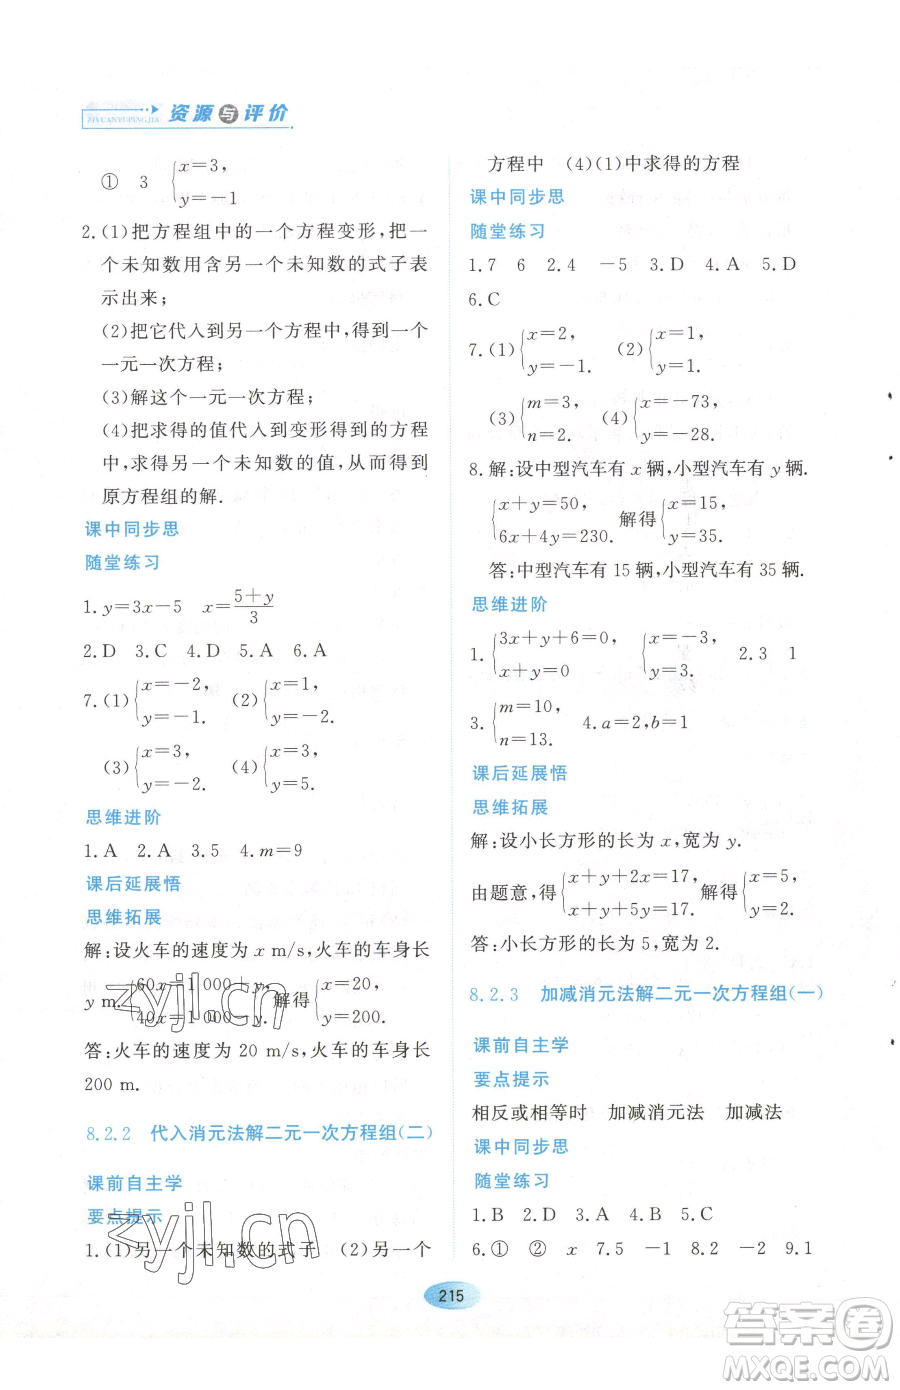 资源与评价
ZIYUANYUPINGJIA
① 3 {x=3,
y=-1
2.(1)把方程组中的一个方程变形,把一
个未知数用含另一个未知数的式子表
示出来;
(2)把它代入到另一个方程中,得到一个
一元一次方程;
(3)解这个一元一次方程;
(4)把求得的值代入到变形后的方程
中,求得另一个未知数的值,从而得到
原方程组的解.
课中同步思
随堂练习
1.y=3x-5 x=(5+y)/3
2.D 3.C 4.D 5.A 6.A
7.(1){x=-2, (2){x=1,
y=-1. y=-2.
(3){x=3, (4){x=3,
y=-2. y=2.
思维进阶
1.A 2.A 3.5 4.m=9
课后延展悟
思维拓展
解:设火车的速度为 x m/s,火车的车身长
y m. {60x=1 000+y, 解得{x=20,
40x=1 000-y. y=200.
答:火车的速度为 20 m/s,火车的车身长
200 m.
8.2.2 代入消元法解二元一次方程组(二)
课前自主学
要点提示
1.(1)另一个未知数的式子 (2)另一个
方程中 (4)(1)中求得的方程
课中同步思
随堂练习
1.7 6 2.4 -5 3.D 4.A 5.D
6.C
7.(1){x=2, (2){x=1,
y=-1. y=1.
(3){m=3, (4){x=-73,
n=2. y=-28.
8.解:设中型汽车有 x 辆,小型汽车有 y 辆.
{x+y=50, 解得{x=15,
6x+4y=230. y=35.
答:中型汽车有 15 辆,小型汽车有 35 辆.
思维进阶
1.{3x+y+6=0, {x=-3, 2.3 1
x+y=0 y=3.
3.{m=10, 4.a=2,b=1
n=13.
课后延展悟
思维拓展
解:设小长方形的长为 x,宽为 y.
由题意,得{x+y+2x=17, 解得{x=5,
x+y+5y=17. y=2.
答:小长方形的长为 5,宽为 2.
8.2.3 加减消元法解二元一次方程组(一)
课前自主学
要点提示
相反或相等时 加减消元法 加减法
课中同步思
随堂练习
1.B 2.D 3.A 4.B 5.C
6.① ② x 7.5 -1 8.2 -2 9.1
215
zyjl.cn
zyjl.cn
答案圈
MXQE.COM